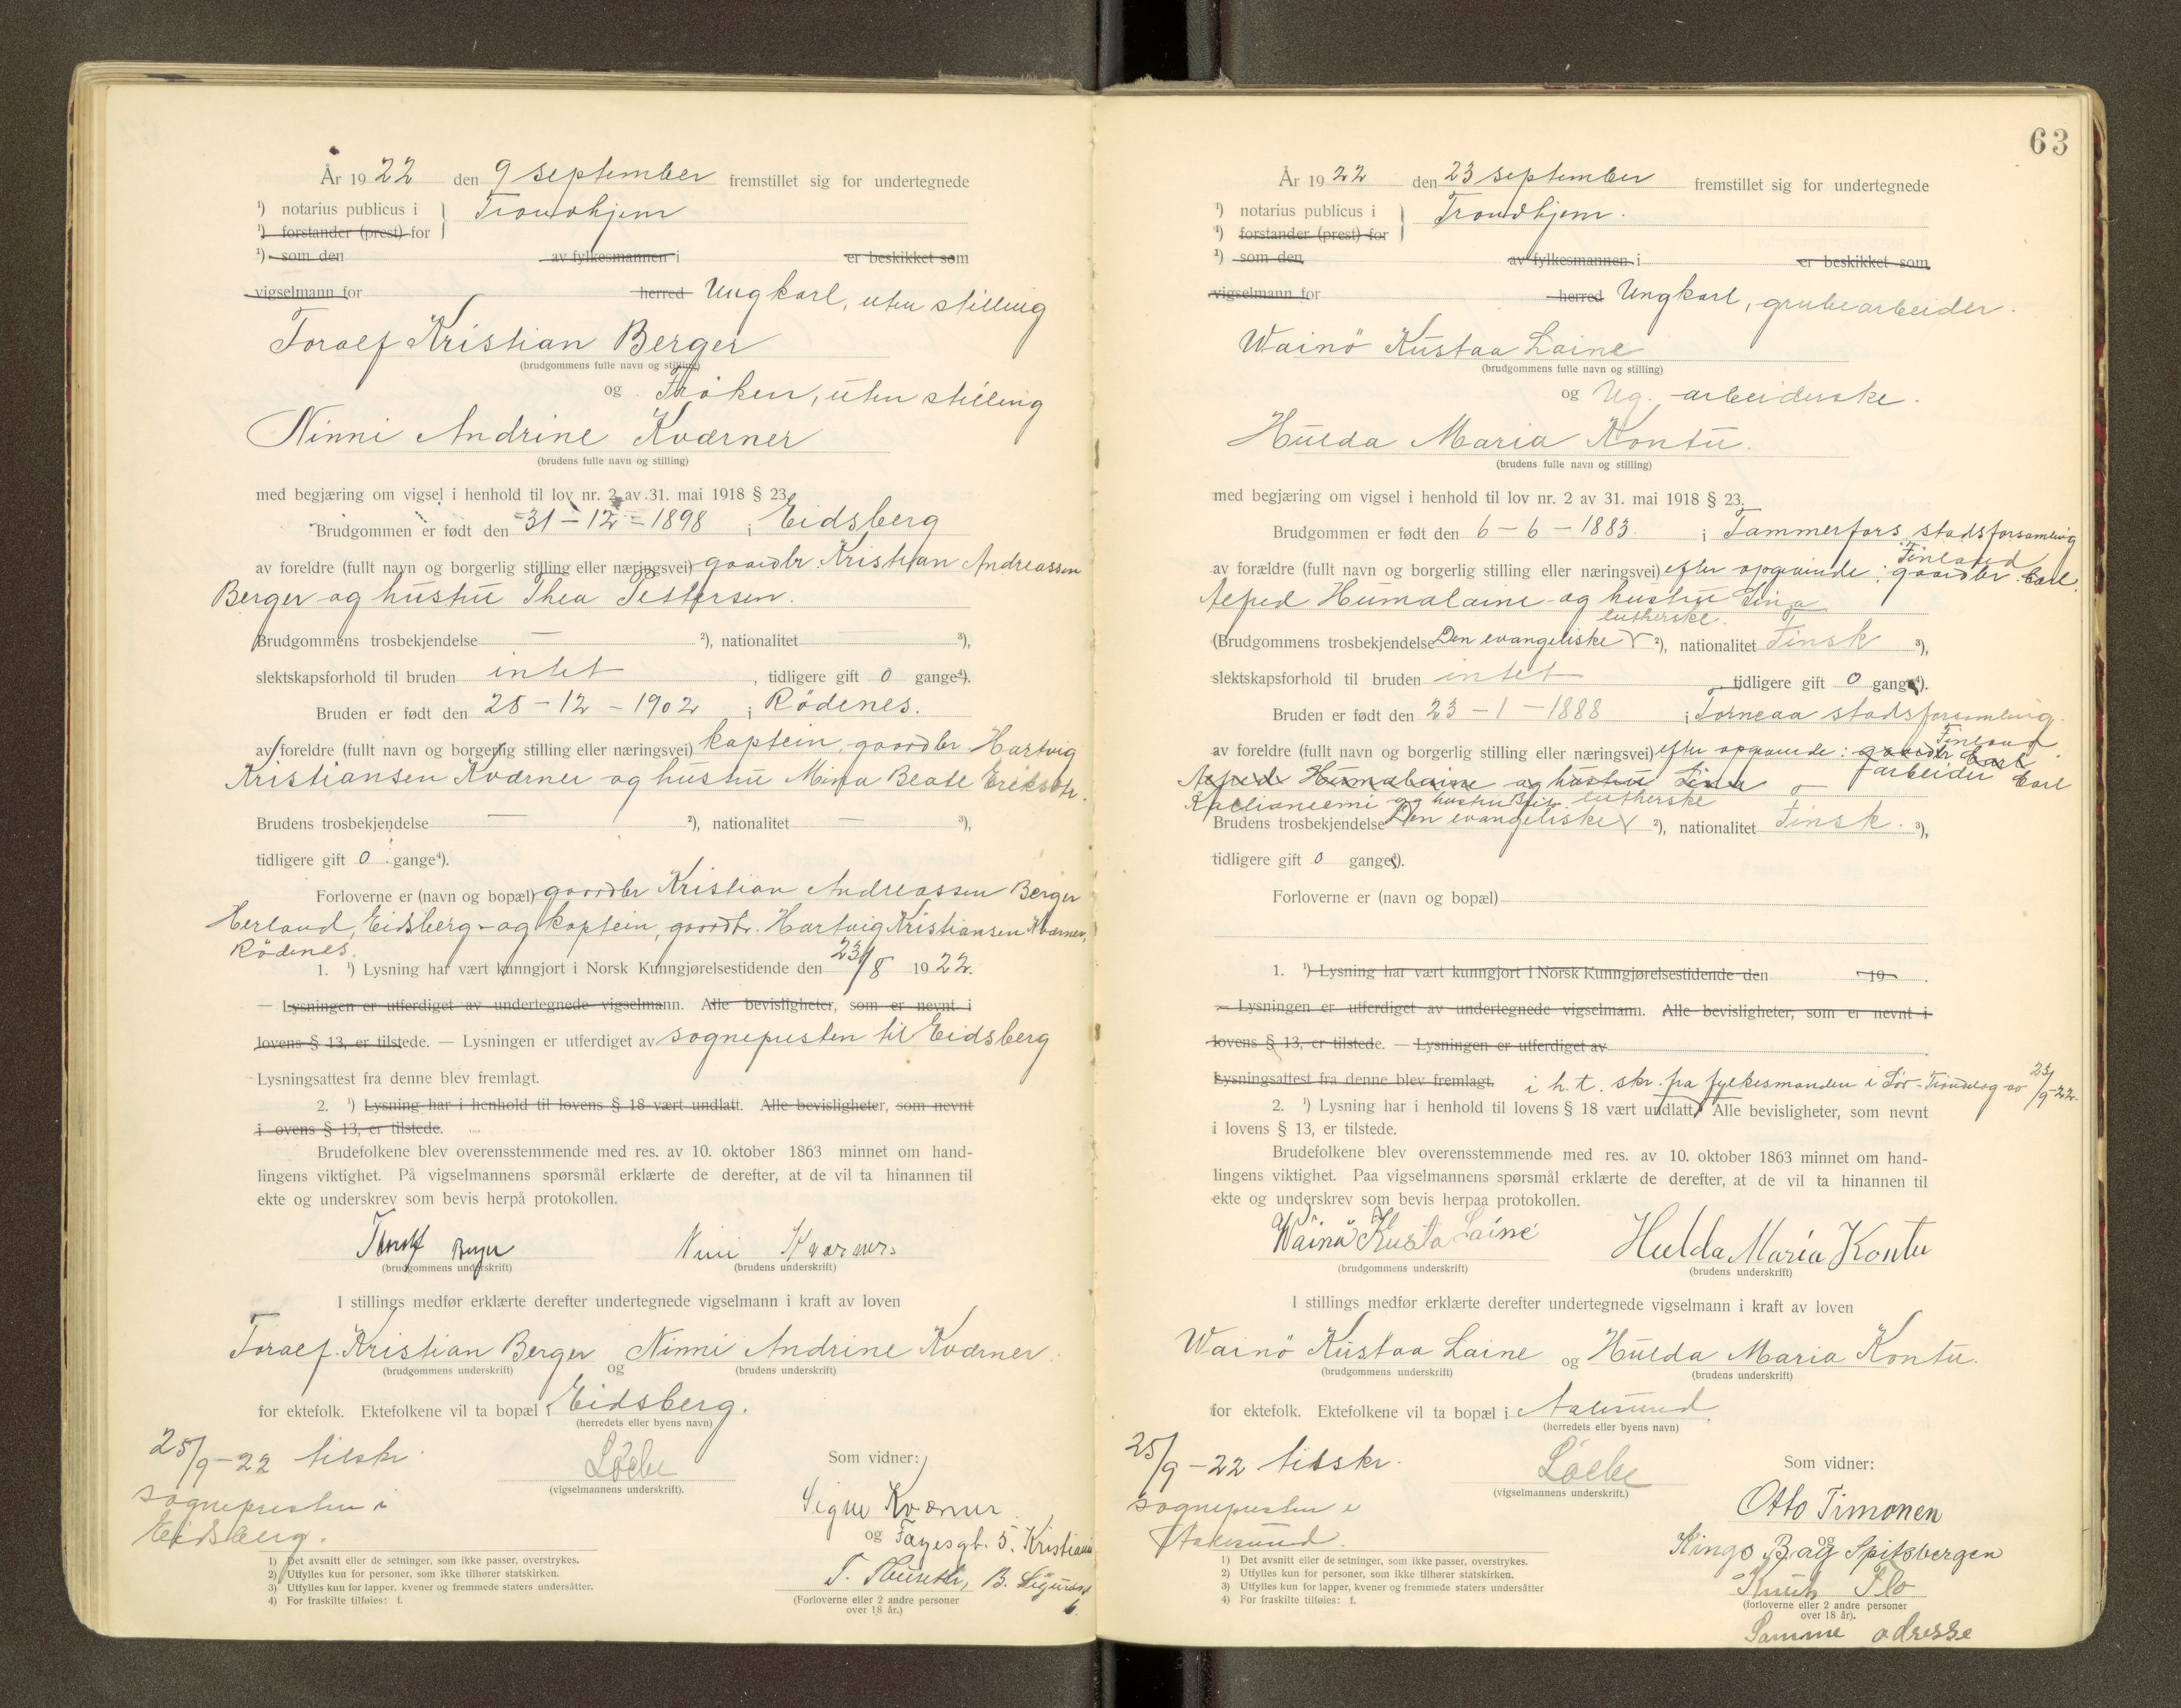 År 1922 den 9 september fremstillet sig for undertegnede
¹) notarius publicus i } Trondhjem
¹) forstander (prest) for
¹) som den av fylkesmannen i er beskikket som
vigselmann for herred Ungkarl, uten stilling
Toralf Kristian Berger
(brudgommens fulle navn og stilling)
og Frøken, uten stilling
Ninni Andrine Kværner
(brudens fulle navn og stilling)
med begjæring om vigsel i henhold til lov nr. 2 av 31. mai 1918 § 23.
Brudgommen er født den 31 - 12 - 1898 i Eidsberg
av foreldre (fullt navn og borgerlig stilling eller næringsvei) gaardbr. Kristian Andreassen
Berger og hustru Thea Pettersen.
Brudgommens trosbekjendelse — ²), nationalitet ³),
slektskapsforhold til bruden intet , tidligere gift 0 gange⁴).
Bruden er født den 28 - 12 - 1902 i Rödenes.
av foreldre (fullt navn og borgerlig stilling eller næringsvei) kaptein, gaardbr Hartvig
Kristiansen Kværner og hustru Mina Beate Eriksdtr.
Brudens trosbekjendelse — ²), nationalitet — ³),
tidligere gift 0 gange⁴).
Forloverne er (navn og bopæl) gaardbr Kristian Andreassen Berger
Herland, Eidsberg - og kaptein, gaardbr. Hartvig Kristiansen Kværner,
Rödenes.
1. ¹) Lysning har vært kunngjort i Norsk Kunngjørelsestidende den 23/8 1922.
— Lysningen er utferdiget av undertegnede vigselmann. Alle bevisligheter, som er nevnt i
lovens § 13, er tilstede. — Lysningen er utferdiget av sognepresten til Eidsberg
Lysningsattest fra denne blev fremlagt.
2. ¹) Lysning har i henhold til lovens § 18 vært undlatt. Alle bevisligheter, som nevnt
i ovens § 13, er tilstede.
Brudefolkene blev overensstemmende med res. av 10. oktober 1863 minnet om hand-
lingens viktighet. På vigselmannens spørsmål erklærte de derefter, at de vil ta hinannen til
ekte og underskrev som bevis herpå protokollen.
Toralf Berger Nini Kværner
(brudgommens underskrift) (brudens underskrift)
I stillings medfør erklærte derefter undertegnede vigselmann i kraft av loven
Toralf Kristian Berger og Ninni Andrine Kværner
(brudgommens underskrift) (brudens underskrift)
for ektefolk. Ektefolkene vil ta bopæl i Eidsberg.
(herredets eller byens navn)
25/9 - 22 tilskr.
sognepresten i
Eidsberg.
(vigselmannens underskrift).
Som vidner:
Signe Kværner
og Fayesgt. 5. Kristiania
(Forloverne eller 2 andre personer
over 18 år.)
1) Det avsnitt eller de setninger, som ikke passer, overstrykes.
2) Utfylles kun for personer, som ikke tilhører statskirken.
3) Utfylles kun for lapper, kvener og fremmede staters undersåtter.
4) For fraskilte tilføies: f.
63
År 1922 den 23 september fremstillet sig for undertegnede
¹) notarius publicus i } Trondhjem.
¹) forstander (prest) for
¹) som den av fylkesmannen i er beskikket som
vigselmann for herred Ungkarl, grubearbeider.
Wainö Kustaa Laine
(brudgommens fulle navn og stilling)
og Ug. arbeiderske.
Hulda Maria Kontu.
(brudens fulle navn og stilling)
med begjæring om vigsel i henhold til lov nr. 2 av 31. mai 1918 § 23.
Brudgommen er født den 6 - 6 - 1883 i Tammerfors stadsforsamling
Finland
av forældre (fullt navn og borgerlig stilling eller næringsvei) efter opgivende: gaardbr. Carl
Alfred Humalaine og hustru Lina
lutherske.
(Brudgommens trosbekjendelse Den evangeliske ²), nationalitet Finsk ³),
slektskapsforhold til bruden intet , tidligere gift 0 gange⁴).
Bruden er født den 23 - 1 - 1888 i Torneaa stadsforsamling.
Finland
av foreldre (fullt navn og borgerlig stilling eller næringsvei) efter opgivende: gaardbr Carl
Alfred Humalaine og hustru Lina arbeider Carl
Kallioneemi og hustru Brita lutherske
Brudens trosbekjendelse Den evangeliske ²), nationalitet Finsk. ³),
tidligere gift 0 gange⁴).
Forloverne er (navn og bopæl)
1. ¹) Lysning har vært kunngjort i Norsk Kunngjørelsestidende den 19 .
— Lysningen er utferdiget av undertegnede vigselmann. Alle bevisligheter, som er nevnt i
lovens § 13, er tilstede. — Lysningen er utferdiget av
Lysningsattest fra denne blev fremlagt. i h. t. skr. fra fylkesmanden i Sør-Trøndelag av 23/9-22.
2. ¹) Lysning har i henhold til lovens § 18 vært undlatt. Alle bevisligheter, som nevnt
i lovens § 13, er tilstede.
Brudefolkene blev overensstemmende med res. av 10. oktober 1863 minnet om hand-
lingens viktighet. Paa vigselmannens spørsmål erklærte de derefter, at de vil ta hinannen til
ekte og underskrev som bevis herpaa protokollen.
Wäinö Kusta Laine Hulda Maria Kontu
(brudgommens underskrift) (brudens underskrift)
I stillings medfør erklærte derefter undertegnede vigselmann i kraft av loven
Wainö Kustaa Laine og Hulda Maria Kontu.
(brudgommens underskrift) (brudens underskrift)
for ektefolk. Ektefolkene vil ta bopæl i Aalesund.
(herredets eller byens navn)
25/9 - 22 tilskr.
sognepresten i
Aalesund.
(vigselmannens underskrift.)
Som vidner:
Otto Timonen
og
Kings Bay Spitsbergen
Knut Flo
(forloverne eller 2 andre personer
over 18 år).
Samme adresse
1) Det avsnitt eller de setninger, som ikke passer, overstrykes.
2) Utfylles kun for personer, som ikke tilhører statskirken.
3) Utfylles kun for lapper, kvener og fremmede staters undersåtter
4) For fraskilte tilføies: f.